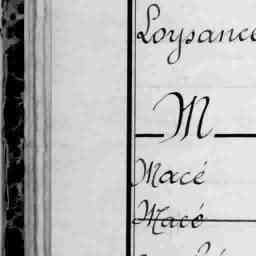 Loysance
M
Macé
Macé